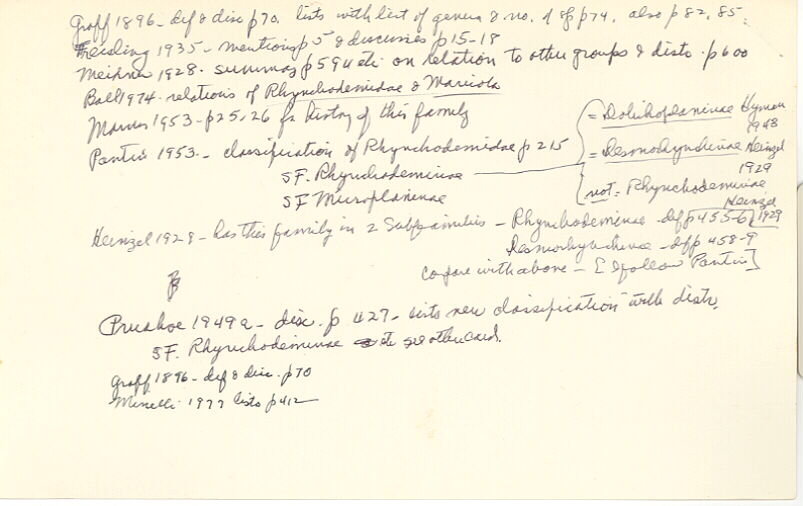 Graff 1896 - def & disc p70. lists with list of genera & no. of sp p74, also p82, 85.
Freisling 1935 - mentions p5 & discusses p15-18
Meixner 1928 - summary p594 etc on relation to other groups & distr. p600
Ball 1974 - relations of Rhynchodemidae & Maricola
Marcus 1953 - p25, 26 for history of this family
Pantin 1953 - classification of Rhynchodemidae p215
SF. Rhynchodeminae
SF Microplaninae
= Dolichoplaninae Hyman 1943
= Desmorhynchinae Heinzel 1929
not = Rhynchodeminae Heinzel 1929
Heinzel 1929 - has this family in 2 Subfamilies - Rhynchodeminae - def p455-6
Desmorhynchinae - def p458-9
Compare with above - [I follow Pantin]
Prudhoe 1949a - disc. p427 - lists new classification with distr.
SF. Rhynchodeminae etc see other card.
Graff 1896 - def & disc. p70
Minelli 1977 lists p412